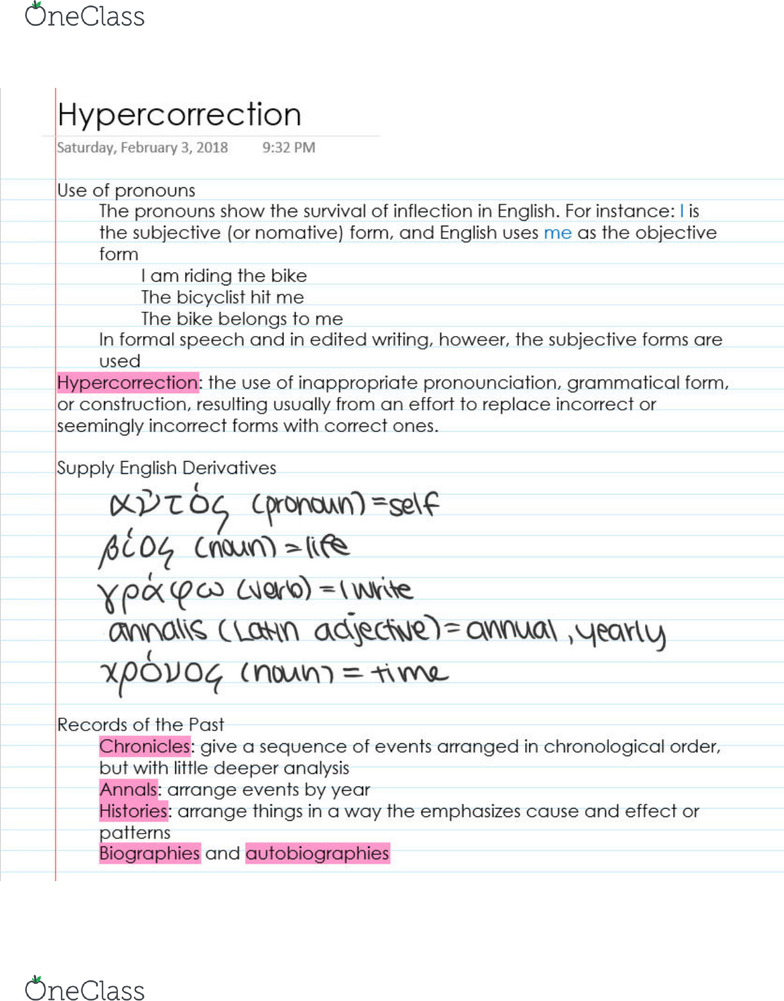 OneClass
Hypercorrection
Saturday, February 3, 2018 9:32 PM
Use of pronouns
The pronouns show the survival of inflection in English. For instance: I is
the subjective (or nomative) form, and English uses me as the objective
form
I am riding the bike
The bicyclist hit me
The bike belongs to me
In formal speech and in edited writing, howeer, the subjective forms are
used
Hypercorrection: the use of inappropriate pronounciation, grammatical form,
or construction, resulting usually from an effort to replace incorrect or
seemingly incorrect forms with correct ones.
Supply English Derivatives
αὐτός (pronoun) = self
βίος (noun) = life
γράφω (verb) = I write
annalis (Latin adjective) = annual, yearly
χρόνος (noun) = time
Records of the Past
Chronicles: give a sequence of events arranged in chronological order,
but with little deeper analysis
Annals: arrange events by year
Histories: arrange things in a way the emphasizes cause and effect or
patterns
Biographies and autobiographies
OneClass